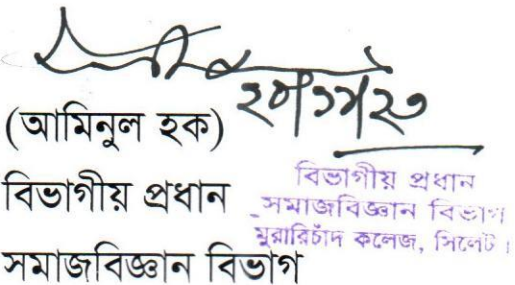 ২০/১/২৩
(আমিনুল হক)
বিভাগীয় প্রধান
সমাজবিজ্ঞান বিভাগ
বিভাগীয় প্রধান
সমাজবিজ্ঞান বিভাগ
মুরারিচাঁদ কলেজ, সিলেট।